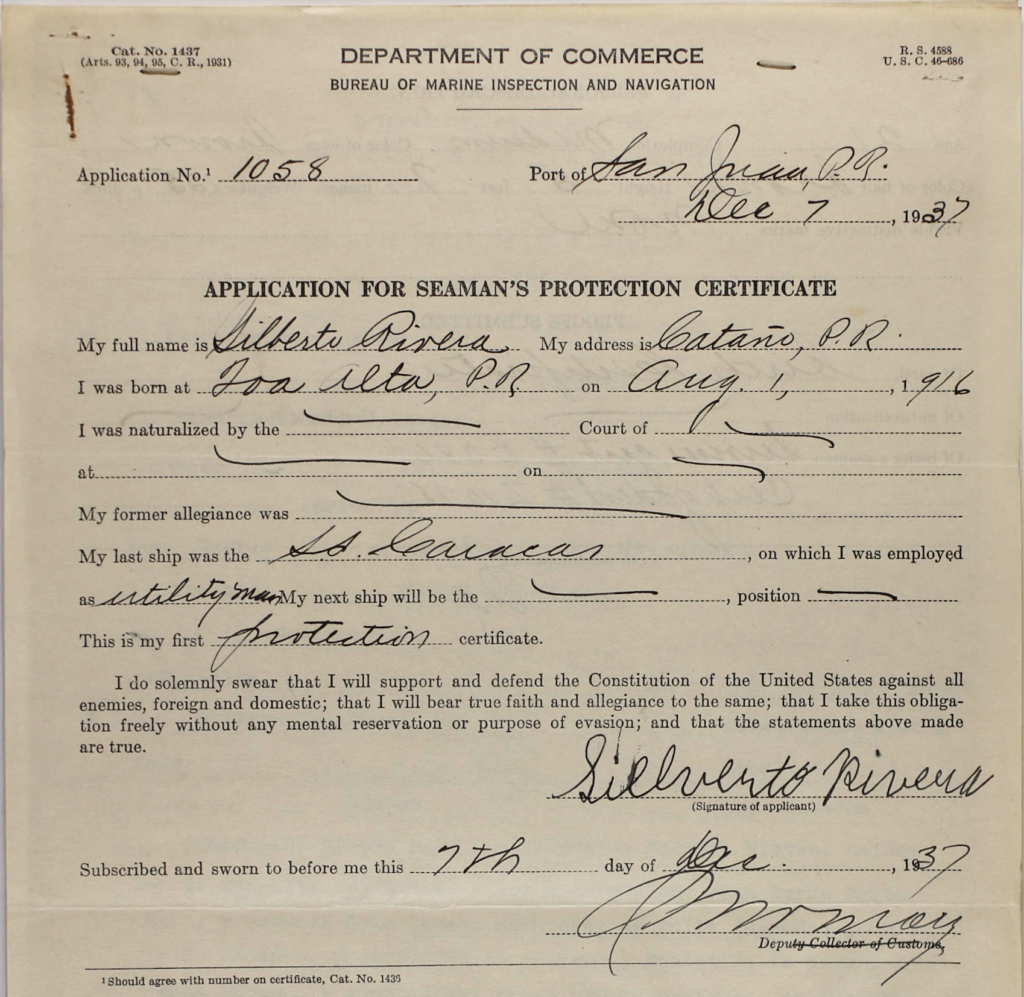 Cat. No. 1437
(Arts. 93, 94, 95, C. R., 1931)
DEPARTMENT OF COMMERCE
BUREAU OF MARINE INSPECTION AND NAVIGATION
R. S. 4588
U. S. C. 46-686
Application No.¹ 1058 Port of San Juan, P.R.
Dec 7, 1937
APPLICATION FOR SEAMAN'S PROTECTION CERTIFICATE
My full name is Gilberto Rivera My address is Cataño, P.R.
I was born at Toa Alta, P.R. on Aug. 1, , 1916
I was naturalized by the Court of
at on
My former allegiance was
My last ship was the SS. Caracas, on which I was employed
as utility man My next ship will be the , position
This is my first protection certificate.
I do solemnly swear that I will support and defend the Constitution of the United States against all
enemies, foreign and domestic; that I will bear true faith and allegiance to the same; that I take this obliga-
tion freely without any mental reservation or purpose of evasion; and that the statements above made
are true.
Gilverto Rivera
(Signature of applicant)
Subscribed and sworn to before me this 7th day of Dec. , 1937
Deputy Collector of Customs.
¹ Should agree with number on certificate, Cat. No. 1436